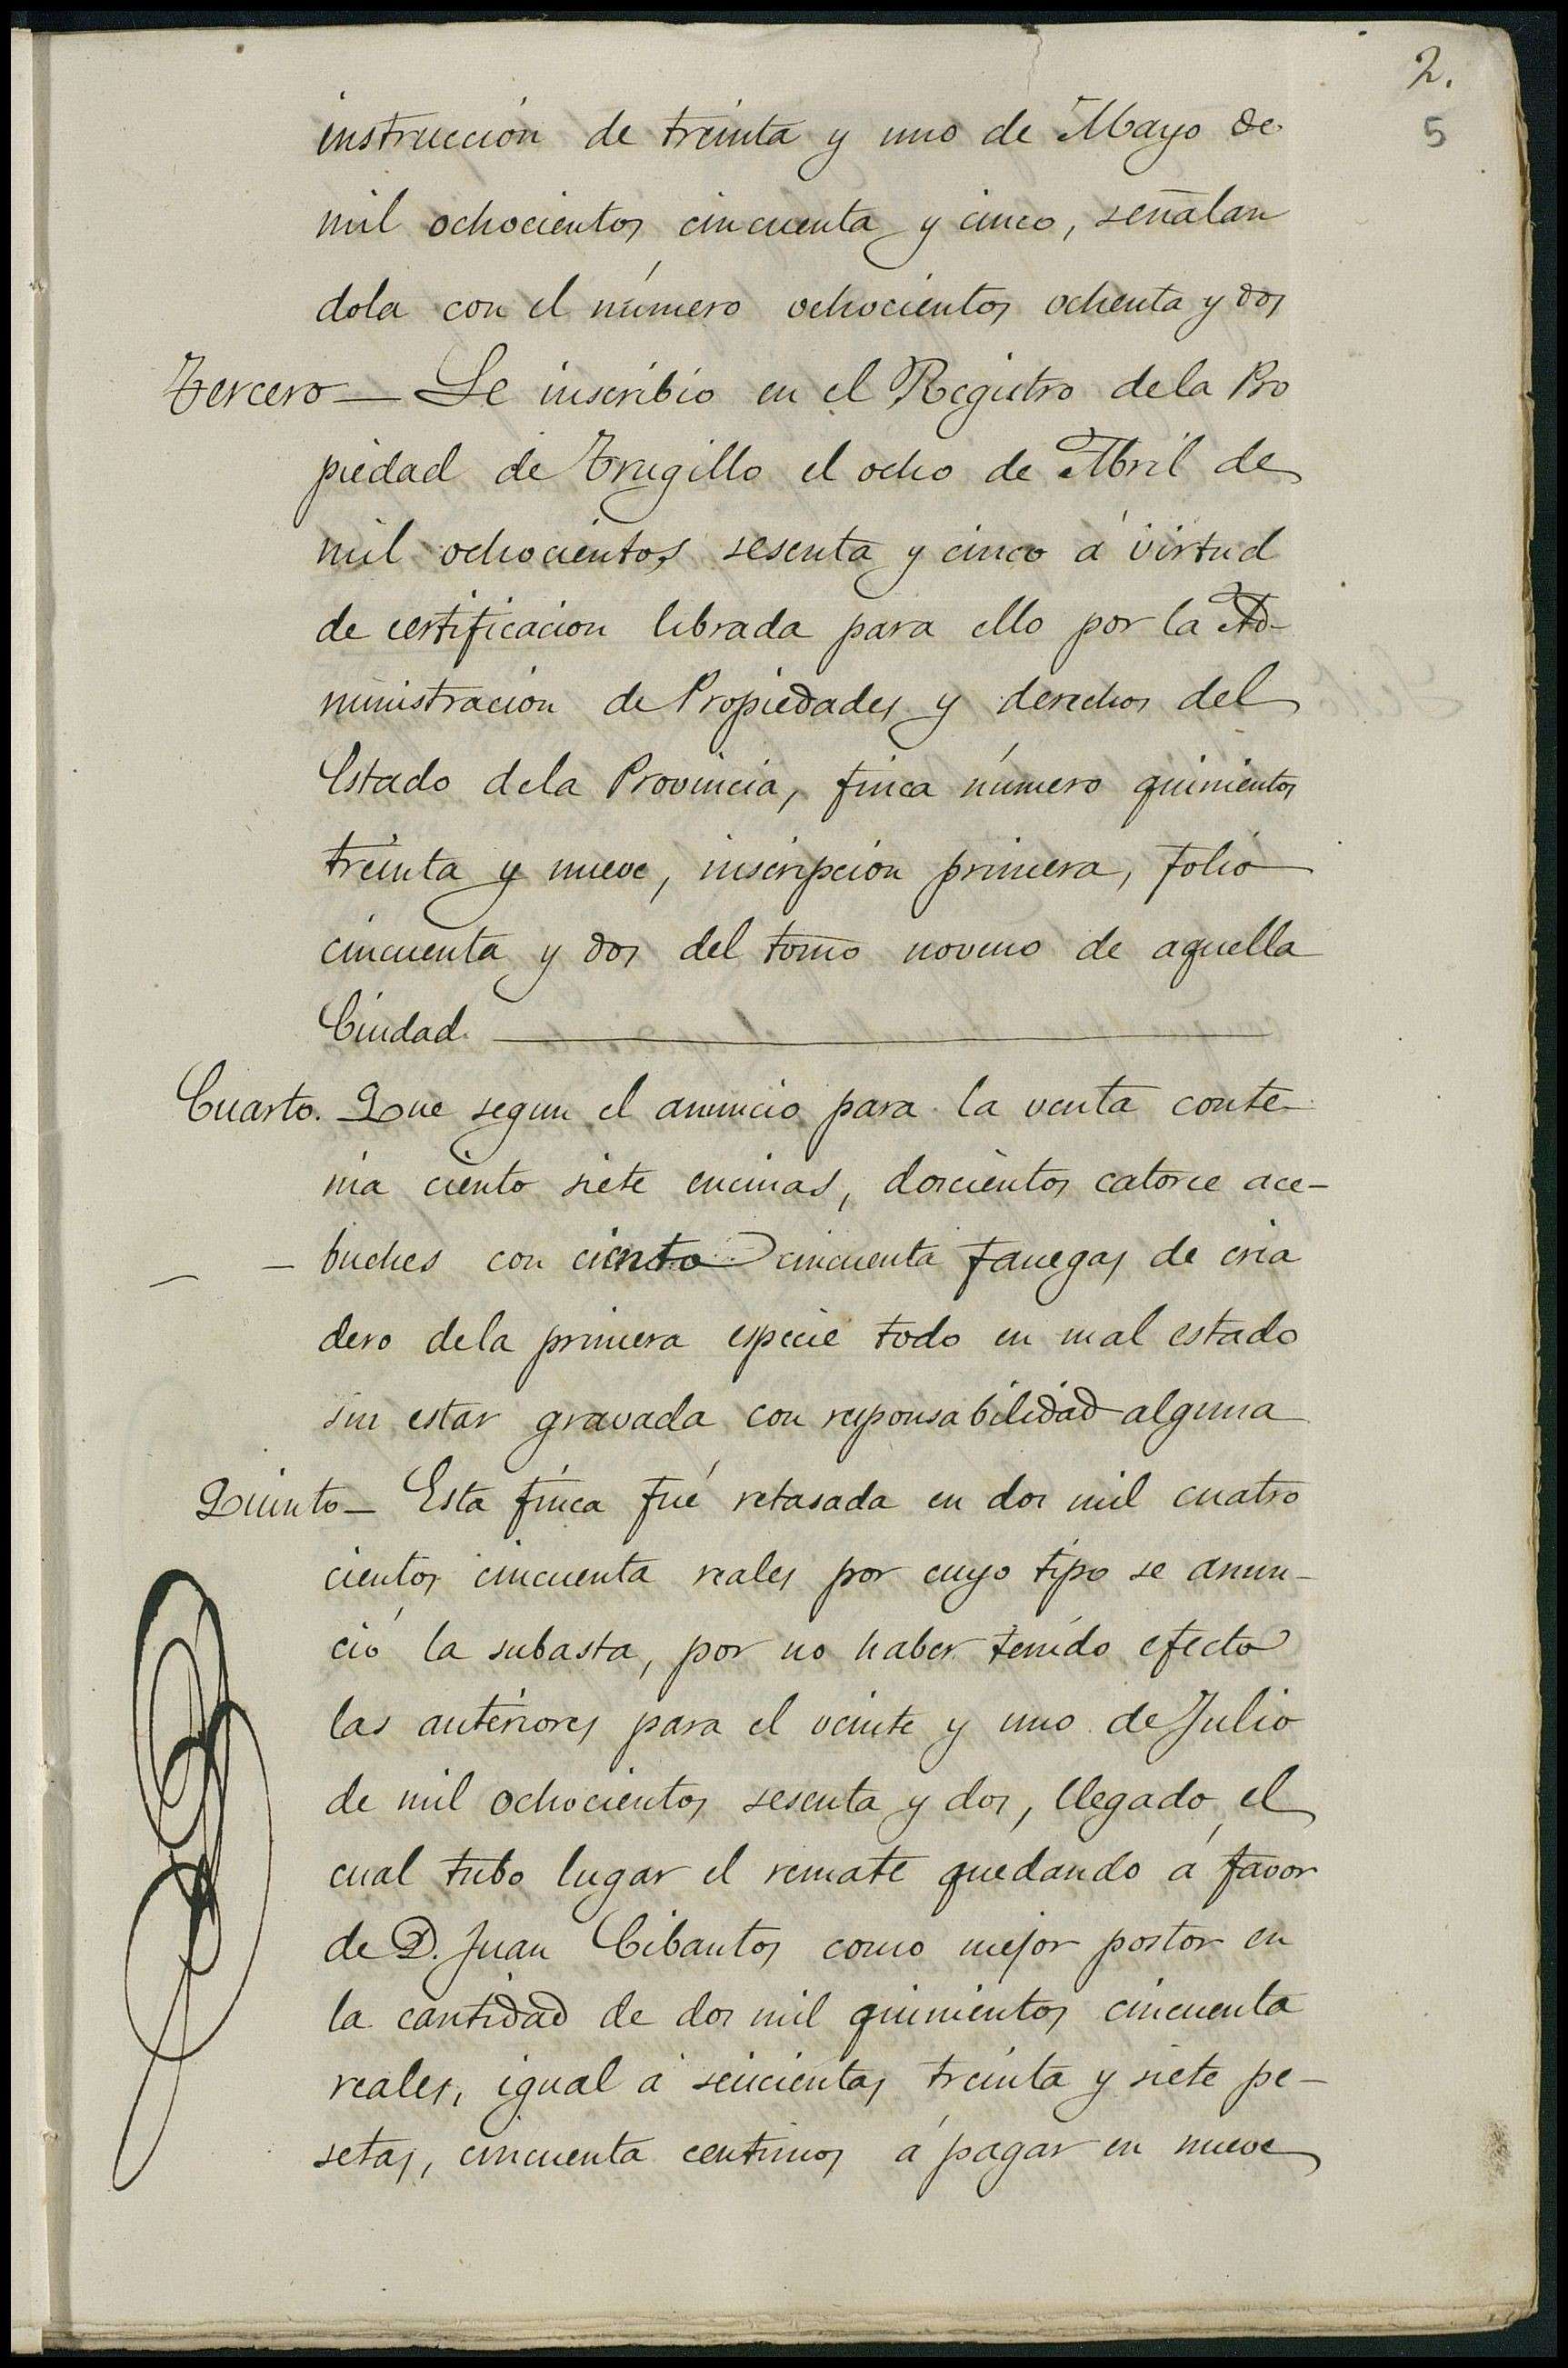 2.
5
instrucción de treinta y uno de Mayo de
mil ochocientos cincuenta y cinco, señalan
dola con el número ochocientos ochenta y dos
Tercero — Se inscribio en el Registro dela Pro
piedad de Trugillo el ocho de Abril de
mil ochocientos sesenta y cinco á virtud
de certificacion librada para ello por la Ad-
ministracion de Propiedades y derechos del
Estado dela Provincia, finca número quinientos
treinta y nueve, inscripcion primera, folio
cincuenta y dos del tomo noveno de aquella
Ciudad. —
Cuarto. Que segun el anuncio para la venta conte-
nia ciento siete encinas, doscientos catorce ace-
— — buches con ciento cincuenta fanegas de cria
dero dela primera especie todo en mal estado
sin estar gravada con responsabilidad alguna
Quinto — Esta finca fué retasada en dos mil cuatro
cientos cincuenta reales por cuyo tipo se anun-
ció la subasta, por no haber tenido efecto
las anteriores para el veinte y uno de Julio
de mil ochocientos sesenta y dos, llegado el
cual tubo lugar el remate quedando á favor
de D. Juan Cibantos como mejor postor en
la cantidad de dos mil quinientos cincuenta
reales, igual á seiscientas treinta y siete pe-
setas, cincuenta centimos á pagar en nueve